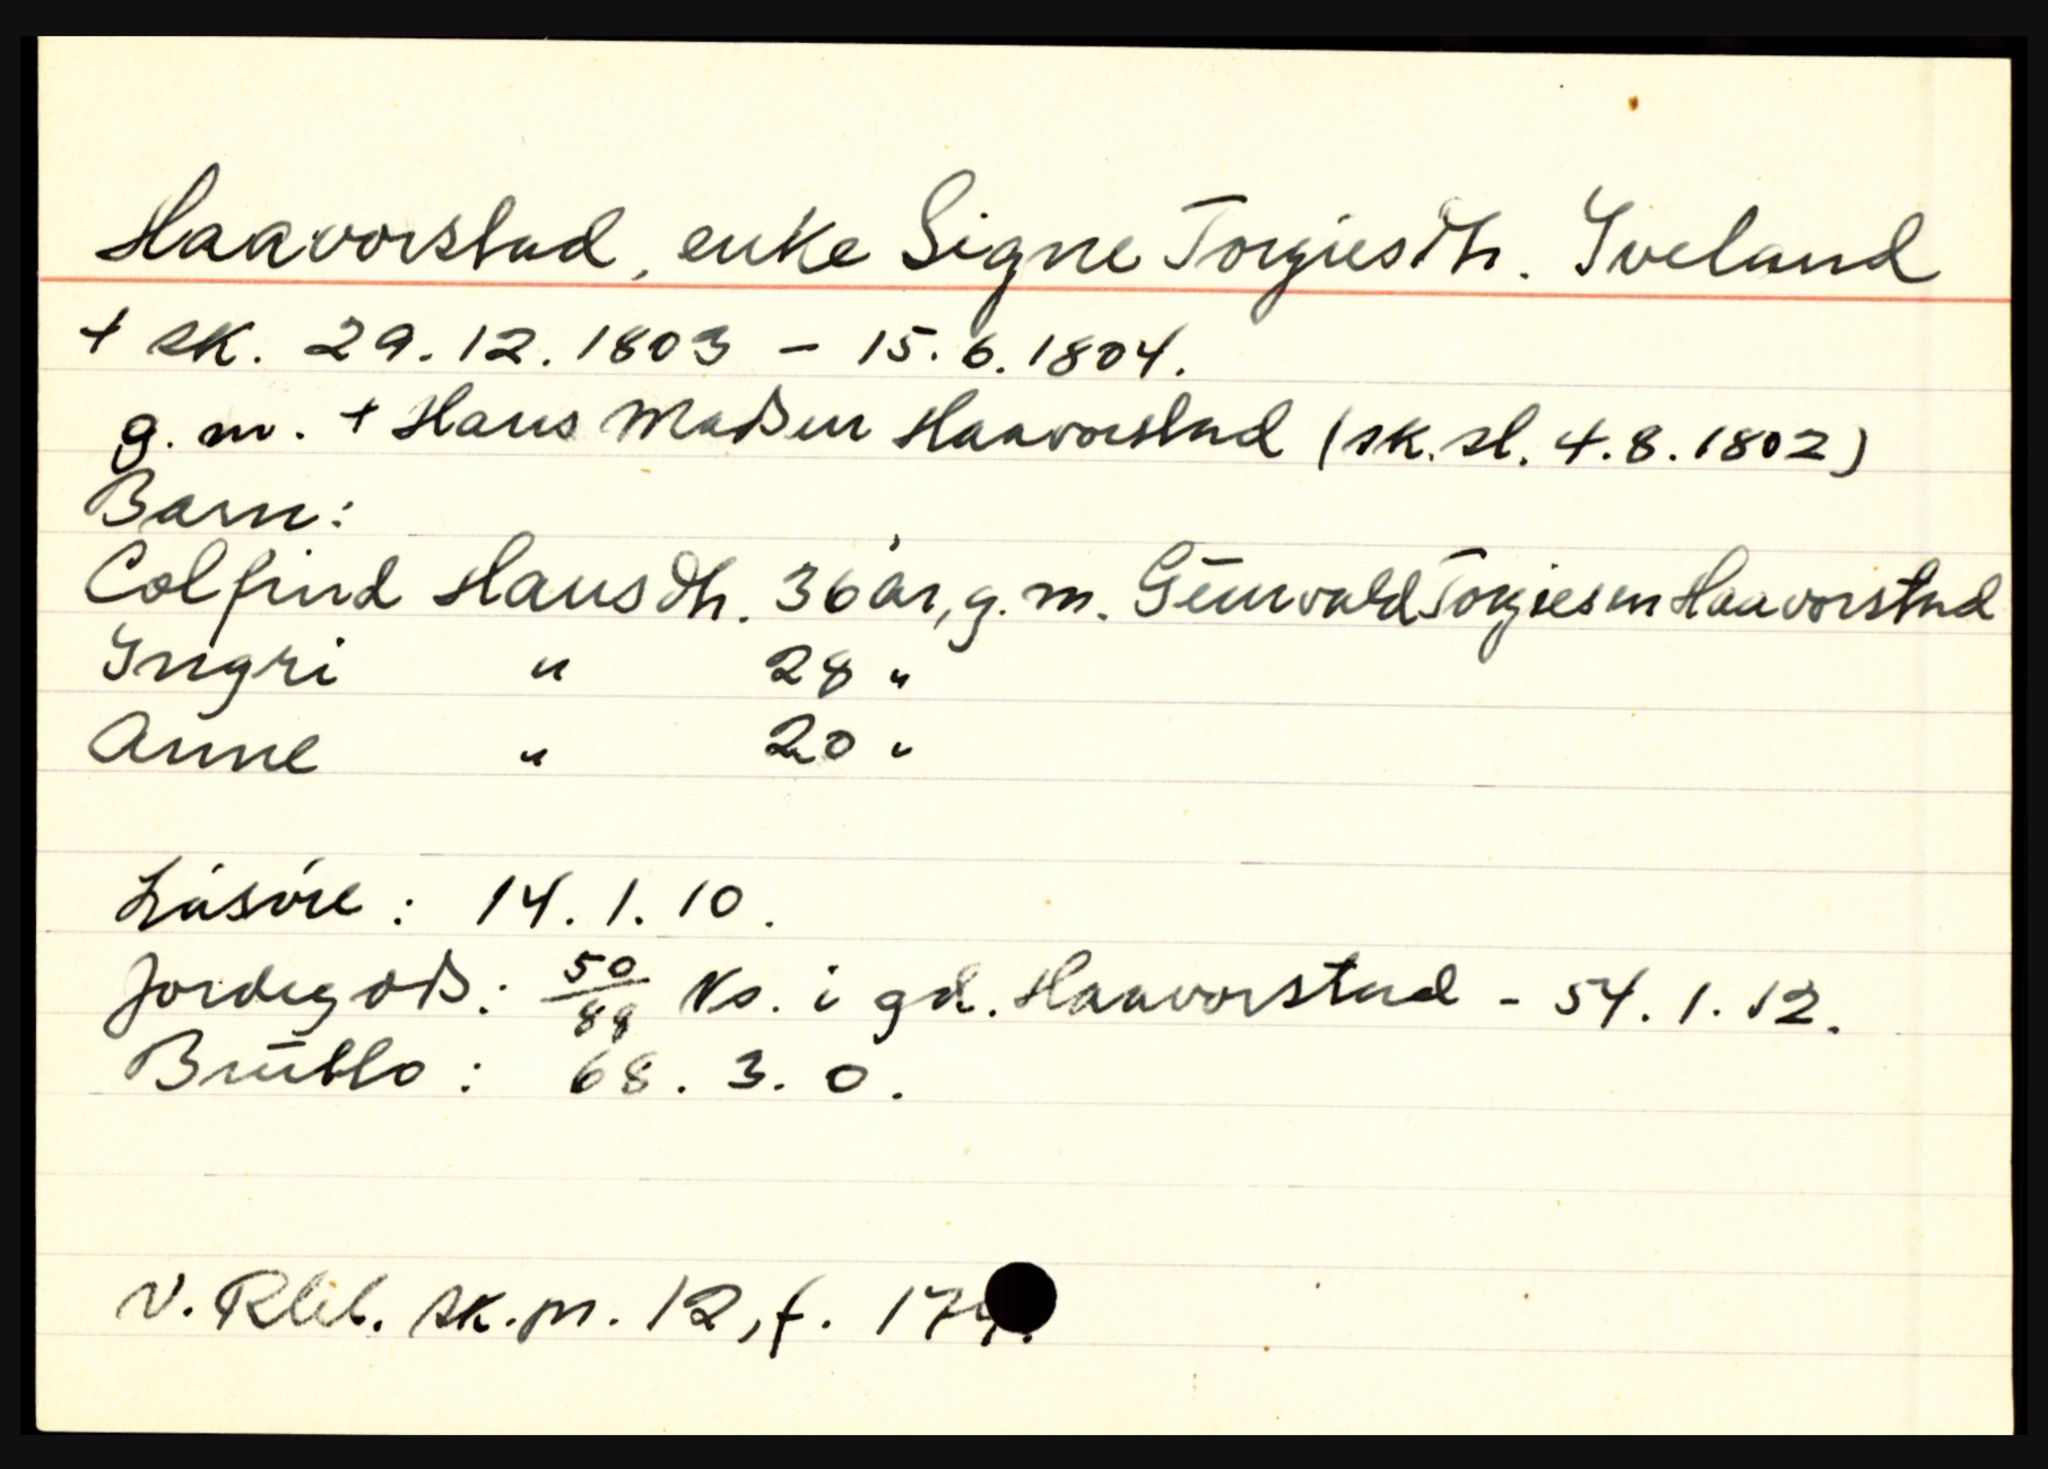 Haavorstad, enke Signe Torgiesdtr. Iveland
+ sk. 29.12.1803 - 15.6.1804.
g. m. + Hans Madsen Haavorstad (sk. sl. 4.8.1802)
Barn:
Colfind Hansdtr. 36 år, g. m. Gunvald Torgiesen Haavorstad
Ingri " 28 "
Anne " 20 "
Løsøre: 14. 1. 10.
Jordegods: 50/88 Ns. i gd. Haavorstad - 54. 1. 12.
Brutto: 68. 3. 0.
V. Rbl. sk.pr. 12, f.